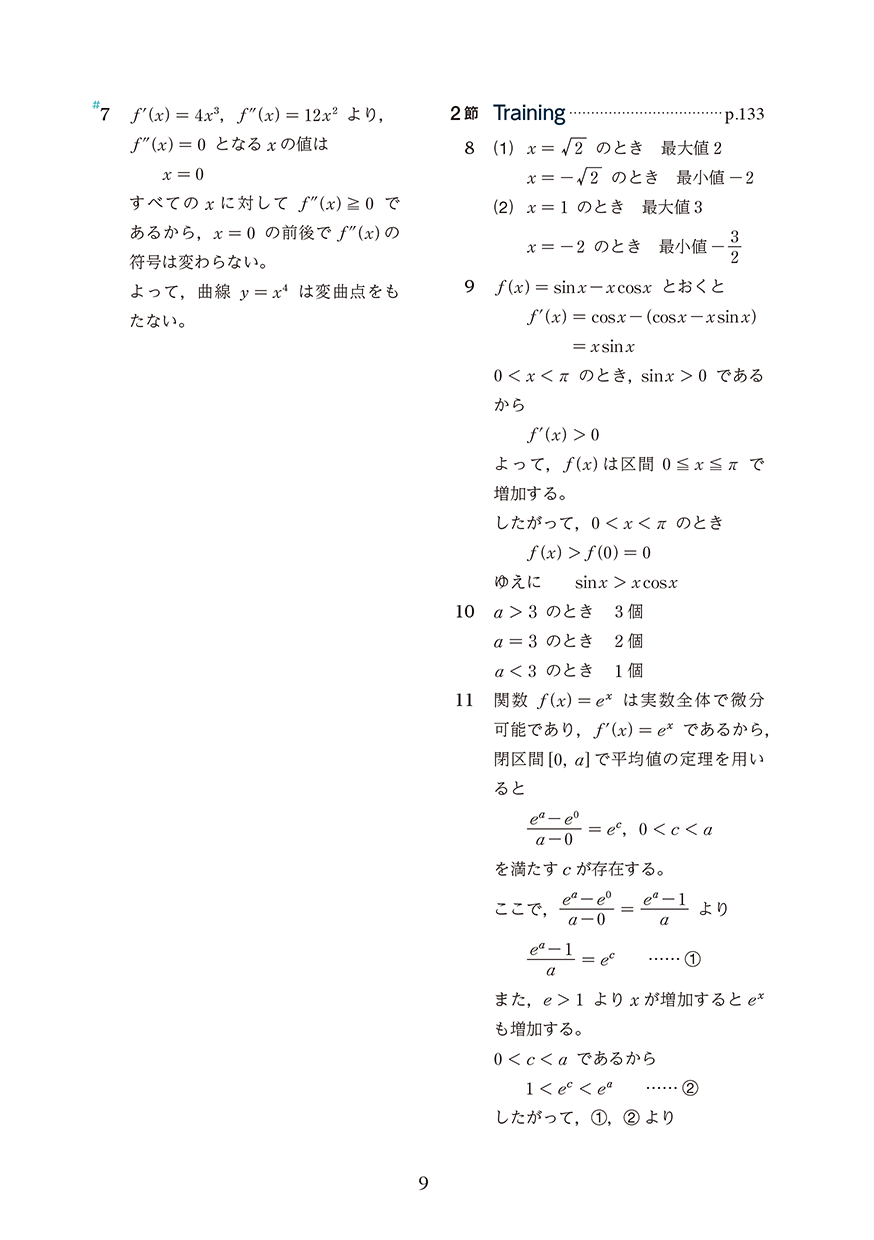 #7 f′(x) = 4x³, f″(x) = 12x² より,
f″(x) = 0 となる x の値は
x = 0
すべての x に対して f″(x) ≧ 0 で
あるから, x = 0 の前後で f″(x) の
符号は変わらない。
よって, 曲線 y = x⁴ は変曲点をも
たない。
2節 Training ……………………………… p.133
8 (1) x = √2 のとき 最大値 2
x = −√2 のとき 最小値 −2
(2) x = 1 のとき 最大値 3
x = −2 のとき 最小値 −3/2
9 f(x) = sin x − x cos x とおくと
f′(x) = cos x − (cos x − x sin x)
= x sin x
0 < x < π のとき, sin x > 0 である
から
f′(x) > 0
よって, f(x) は区間 0 ≦ x ≦ π で
増加する。
したがって, 0 < x < π のとき
f(x) > f(0) = 0
ゆえに sin x > x cos x
10 a > 3 のとき 3 個
a = 3 のとき 2 個
a < 3 のとき 1 個
11 関数 f(x) = eˣ は実数全体で微分
可能であり, f′(x) = eˣ であるから,
閉区間 [0, a] で平均値の定理を用い
ると
(eᵃ − e⁰)/(a − 0) = eᶜ, 0 < c < a
を満たす c が存在する。
ここで, (eᵃ − e⁰)/(a − 0) = (eᵃ − 1)/a より
(eᵃ − 1)/a = eᶜ …… ①
また, e > 1 より x が増加すると eˣ
も増加する。
0 < c < a であるから
1 < eᶜ < eᵃ …… ②
したがって, ①, ② より
9